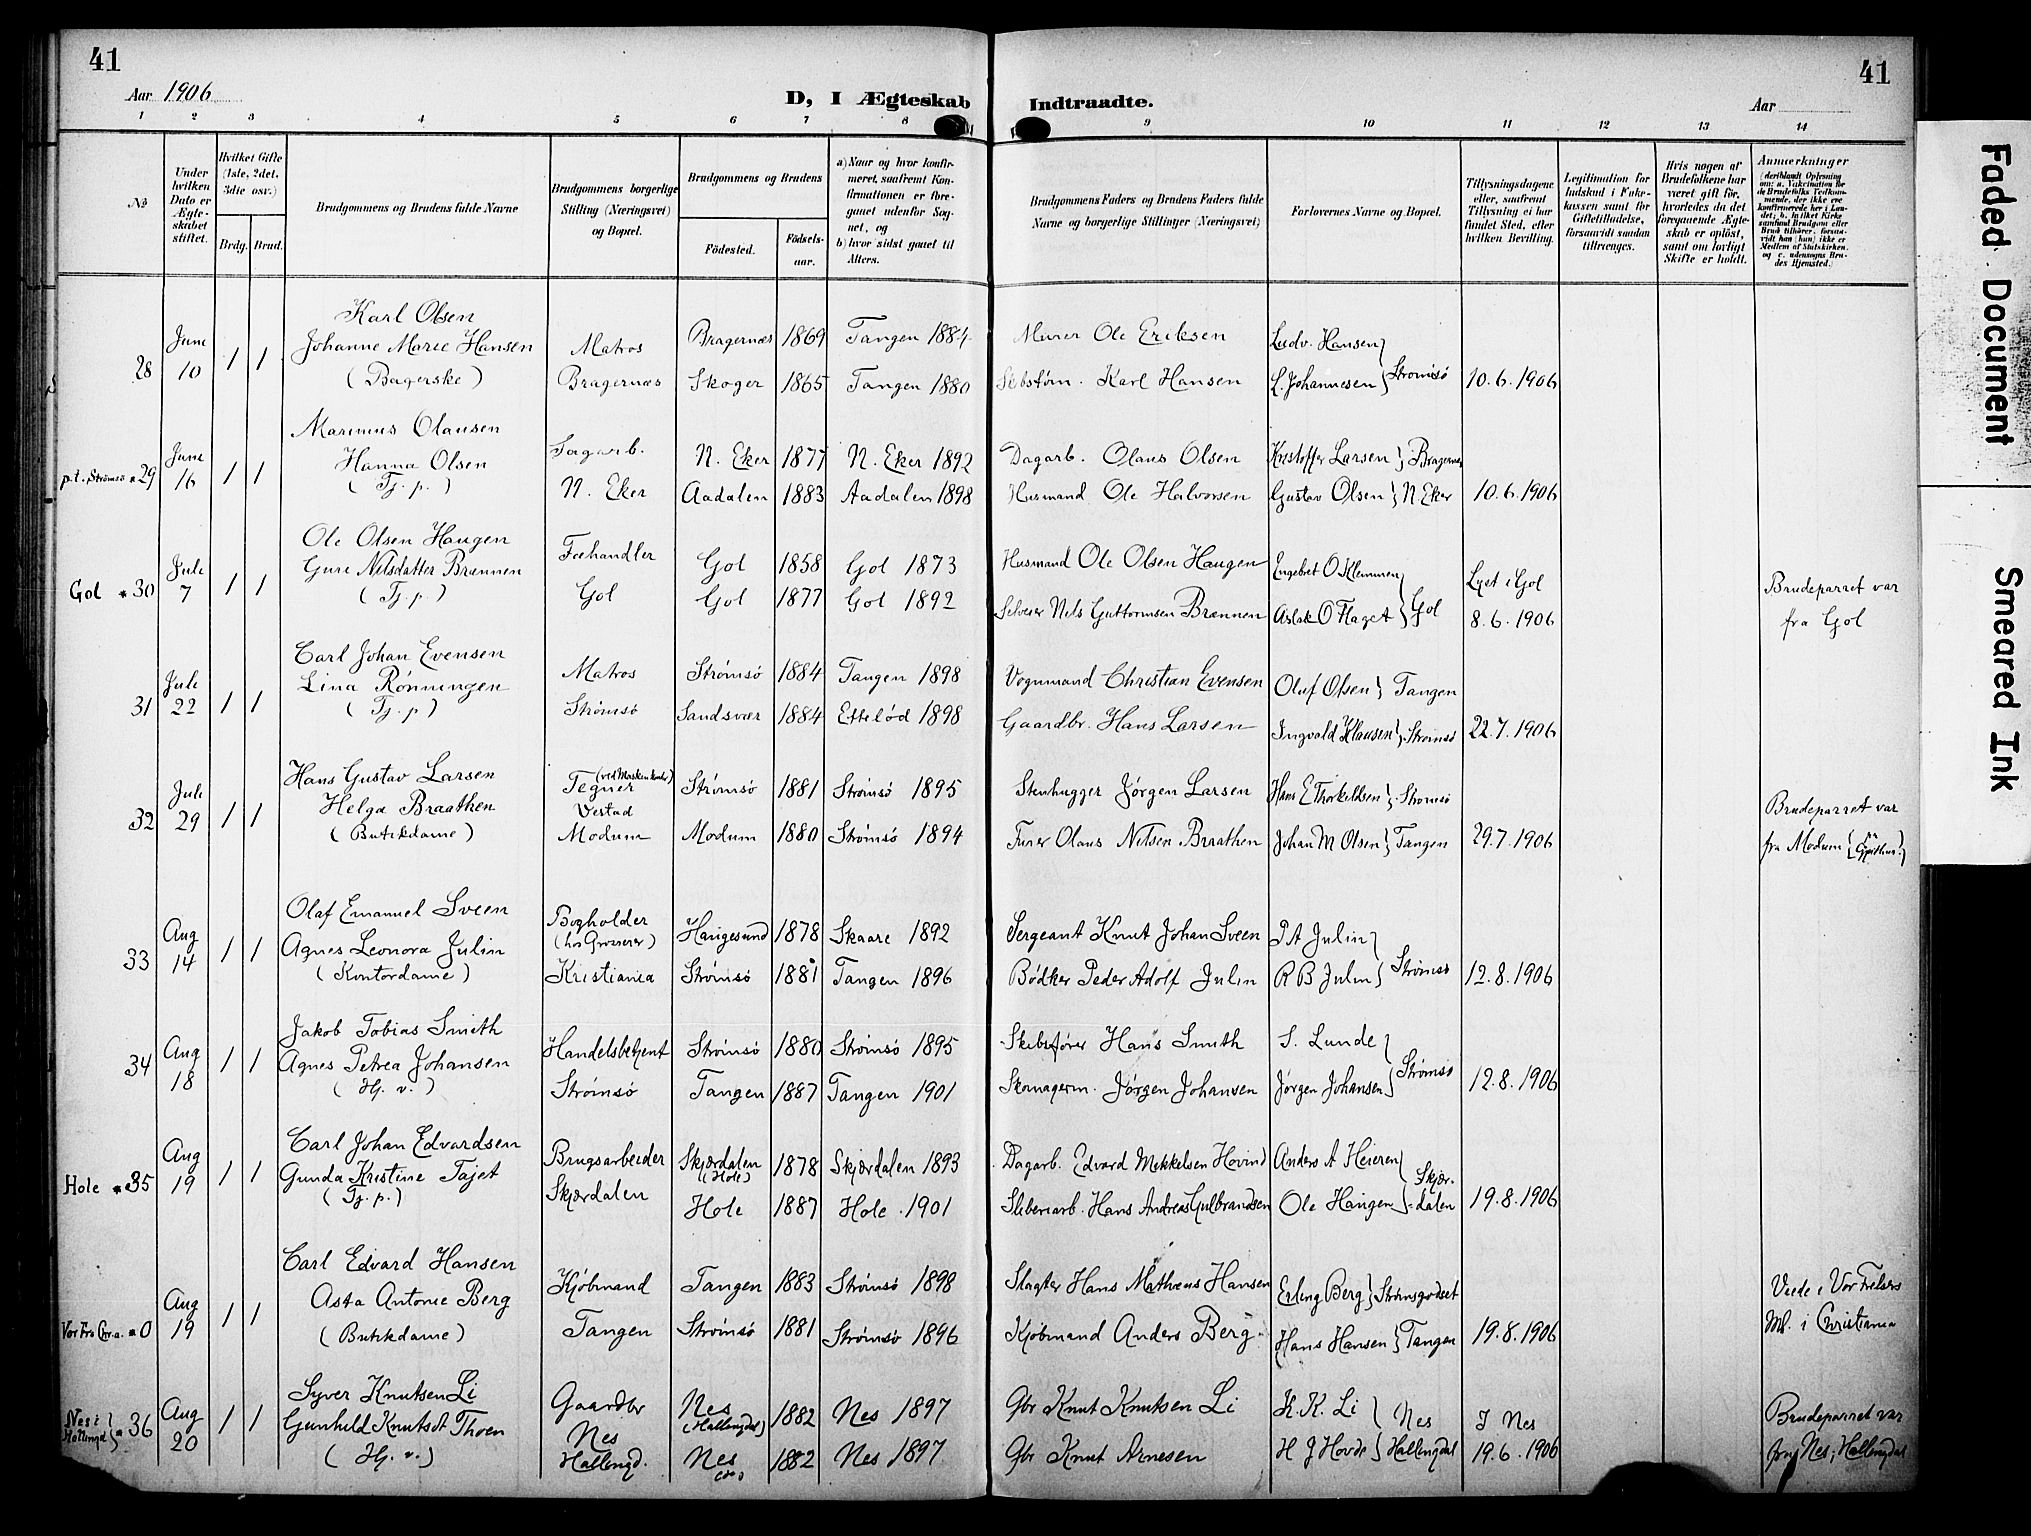 41
Aar 1906
D, I Ægteskab Indtraadte.
Aar
41
1 2 3 4 5 6 7 8 9 10 11 12 13 14
No
Under hvilken Dato er Ægteskabet stiftet.
Hvilket Gifte (1ste, 2det, 3die osv.)
Brdg. Brud.
Brudgommens og Brudens fulde Navne
Brudgommens borgerlige Stilling (Næringsvei) og Bopæl.
Brudgommens og Brudens
Födested. Födselsaar.
a) Naar og hvor konfirmeret, saafremt Konfirmationen er foregaaet udenfor Sognet, og
b) hvor sidst gaaet til Alters.
Brudgommens Faders og Brudens Faders fulde Navne og borgerlige Stillinger (Næringsvei)
Forlovernes Navne og Bopæl.
Tillysningsdagene eller, saafremt Tillysning ei har fundet Sted, efter hvilken Bevilling.
Legitimation for Indskud i Enkekassen samt for Giftetilladelse, forsaavidt saadan tiltrænges.
Hvis nogen af Brudefolkene har været gift för, hvorledes da det foregaaende Ægteskab er oplöst, samt om lovligt Skifte er holdt.
Anmærkninger
28 Juni 10 1 1
Karl Olsen
Johanne Marie Hansen
(Bagerske)
Matros
Bragernæs
Bragernæs 1869 Tangen 1884
Skoger 1865 Tangen 1880
Murer Ole Eriksen
Karl Hansen
Ludv. Hansen
L. Johannesen } Strømsö
10.6.1906
p.t. Strømsø 29 Juni 16 1 1
Marinius Olausen
Hanna Olsen
(Tj. p.)
Sagarb.
N. Eker
N. Eker 1877 N. Eker 1892
Aadalen 1883 Aadalen 1898
Dagarb. Olaus Olsen
Husmand Ole Halvorsen
Kristoffer Larsen } Bragernæs
Gustav Olsen } N. Eker
10.6.1906
Gol 30 Juli 7 1 1
Ole Olsen Haugen
Guri Nilsdatter Brænnen
(Tj. p.)
Fæhandler
Gol
Gol 1858 Gol 1873
Gol 1877 Gol 1892
Husmand Ole Olsen Haugen
Selveier Nils Guttormsen Brænnen
Engebret O Klemmen
Aslak O Flaget } Gol
Lyst i Gol
8.6.1906
Brudeparret var
fra Gol
31 Juli 22 1 1
Carl Johan Evensen
Lina Rönningen
(Tj. p)
Matros
Strømsö
Strømsö 1884 Tangen 1898
Sandsvær 1884 Efteløt 1898
Vognmand Christian Evensen
Gaardbr. Hans Larsen
Oluf Olsen } Tangen
Ingvald Klausen } Strømsö
22.7.1906
32 Juli 29 1 1
Hans Gustav Larsen
Helga Braathen
(Butikdame)
Tegner
Vestad
Modum
Strømsö 1881 Strømsö 1895
Modum 1880 Strømsö 1894
Stenhugger Jørgen Larsen
Olaus Nilsen Braathen
Hans E Thorkildsen } Strømsö
Johan M Olsen } Tangen
29.7.1906
Brudeparret var
fra Modum
33 Aug 14 1 1
Olaf Emanuel Sveen
Agnes Leonora Julin
(Kontordame)
Bogholder
(hos Grosserer)
Kristiania
Haugesund 1878 Skaare 1892
Strømsö 1881 Tangen 1896
Sergeant Knut Johan Sveen
Bødker Peder Adolf Julin
P A Julin
R B Julin } Strømsö
12.8.1906
34 Aug 18 1 1
Jakob Tobias Smith
Agnes Petrea Johansen
(Hj. v.)
Handelsbetjent
Strømsö
Strømsö 1880 Strømsö 1895
Tangen 1887 Tangen 1901
Skibsfører Hans Smith
Skomagerm. Jørgen Johansen
S. Lunde
Jørgen Johansen } Strømsö
12.8.1906
Hole 35 Aug 19 1 1
Carl Johan Edvardsen
Gunda Kristine Tajet
(Tj. p.)
Brugsarbeider
Skjærdalen
Skjærdalen (Hole) 1878 Skjærdalen 1893
Hole 1887 Hole 1901
Dagarb. Edvard Mikkelsen Hovind
Sliberiarb. Hans Andreas Gulbrandsen
Anders A Heieren
Ole Haugen } Skjær-
dalen
19.8.1906
Vor Frs Chr.a. 0 Aug 19 1 1
Carl Edvard Hansen
Asta Antonie Berg
(Butikdame)
Kjøbmand
Tangen
Tangen 1883 Strømsö 1898
Strømsö 1881 Strømsö 1896
Slagter Hans Mathæus Hansen
Kjøbmand Anders Berg
Erling Berg } Strømsgodset
Hans Hansen } Tangen
19.8.1906
Viede i Vor Frelsers
i Christiania
Nes i Hallingd. 36 Aug 20 1 1
Syver Knutsen Li
Gunhild Knutsdt Thoen
(Hj. v.)
Gaardbr
Nes
Hallingd.
Nes (Hallingdal) 1882 Nes 1897
Nes 1882 Nes 1897
Gbr Knut Knutsen Li
Gbr Knut Arnesen
K. K. Li
H J Hovde } Nes
Hallingdal
I Nes
19.6.1906
Brudeparret var
fra Nes, Hallingdal
Faded Document
Smeared Ink